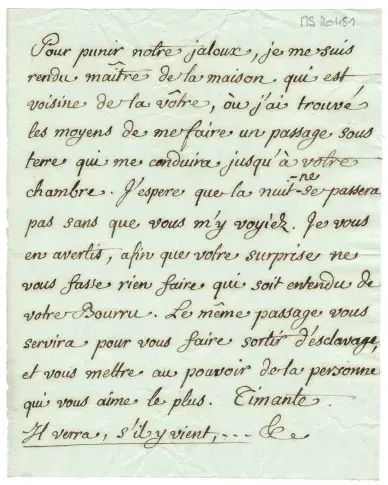 MS 20451
Pour punir notre jaloux, je me suis
rendu maître de la maison qui est
voisine de la vôtre, où j'ai trouvé
les moyens de me faire un passage sous
terre qui me conduira jusqu'à votre
chambre. J'espere que la nuit-ne-se passera
pas sans que vous m'y voyiez. Je vous
en avertis, afin que votre surprise ne
vous fasse rien faire qui soit entendu de
votre Bourru. Le même passage vous
servira pour vous faire sortir d'esclavage,
et vous mettre au pouvoir de la personne
qui vous aime le plus. Timante.
Il verra, s'il y vient, ... &c